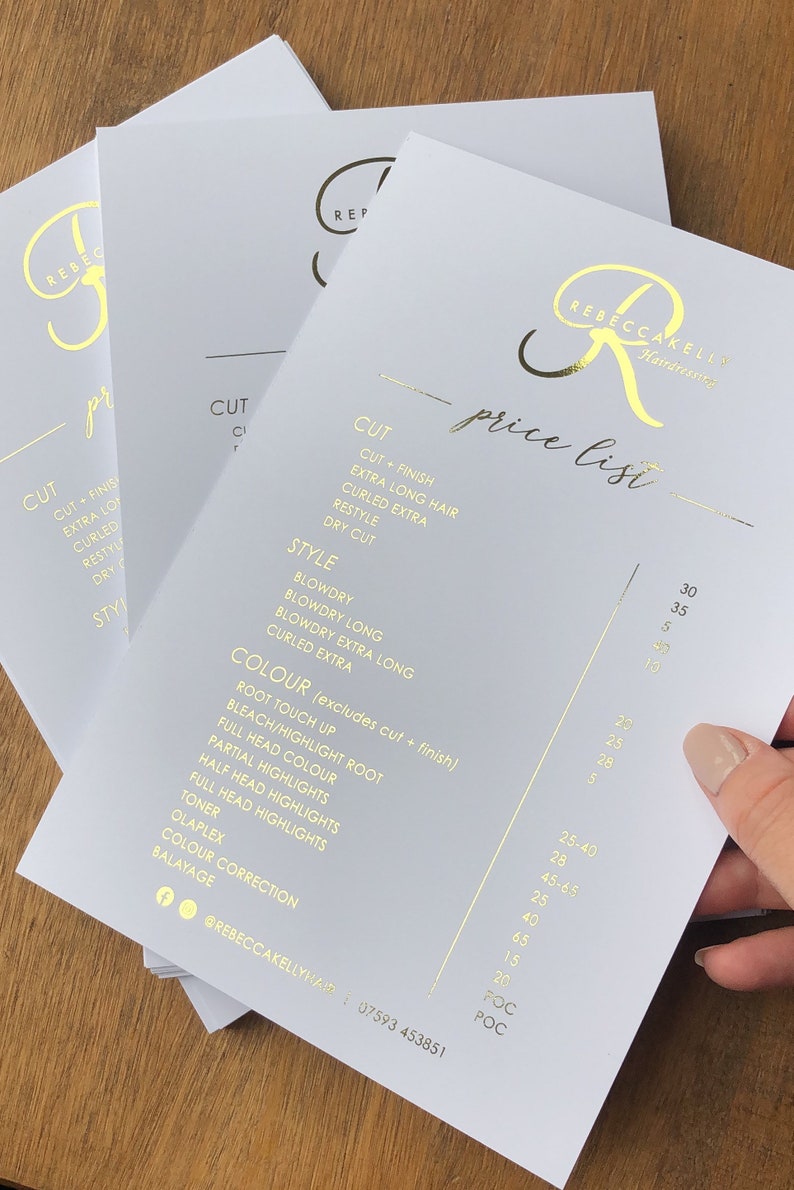 REBECCAKELLY
Hairdressing
price list
CUT
CUT + FINISH 30
EXTRA LONG HAIR 35
CURLED EXTRA 5
RESTYLE 40
DRY CUT 10
STYLE
BLOWDRY 20
BLOWDRY LONG 25
BLOWDRY EXTRA LONG 28
CURLED EXTRA 5
COLOUR (excludes cut + finish)
ROOT TOUCH UP 25-40
BLEACH/HIGHLIGHT ROOT 28
FULL HEAD COLOUR 45-65
PARTIAL HIGHLIGHTS 25
HALF HEAD HIGHLIGHTS 40
FULL HEAD HIGHLIGHTS 65
TONER 15
OLAPLEX 20
COLOUR CORRECTION POC
BALAYAGE POC
@REBECCAKELLYHAIR | 07593 453851
REB
CUT
CU
REBECCA
pr
CUT
CUT + FINISH
EXTRA LON
CURLED
RESTYLE
DRY C
STYL